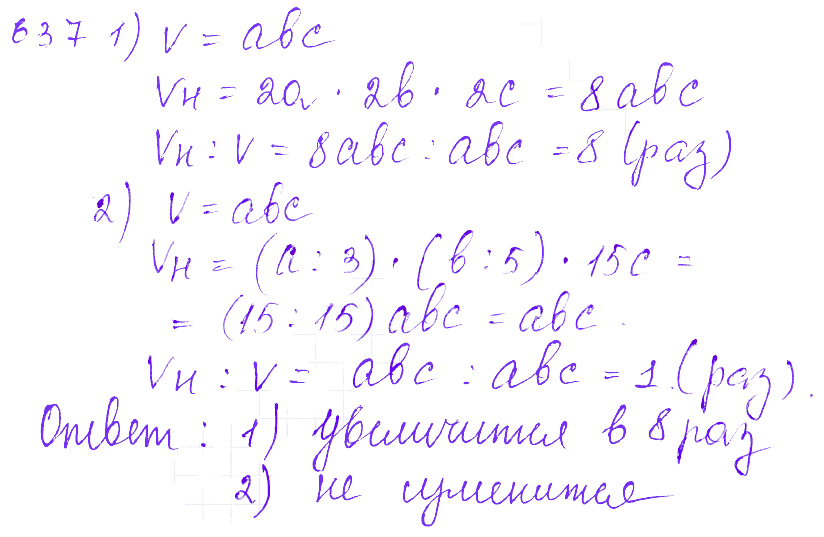 637 1) V = abc
Vн = 2a · 2b · 2c = 8abc
Vн : V = 8abc : abc = 8 (раз)
2) V = abc
Vн = (a : 3) · (b : 5) · 15c =
= (15 : 15) abc = abc.
Vн : V = abc : abc = 1 (раз).
Ответ : 1) увеличится в 8 раз
2) не